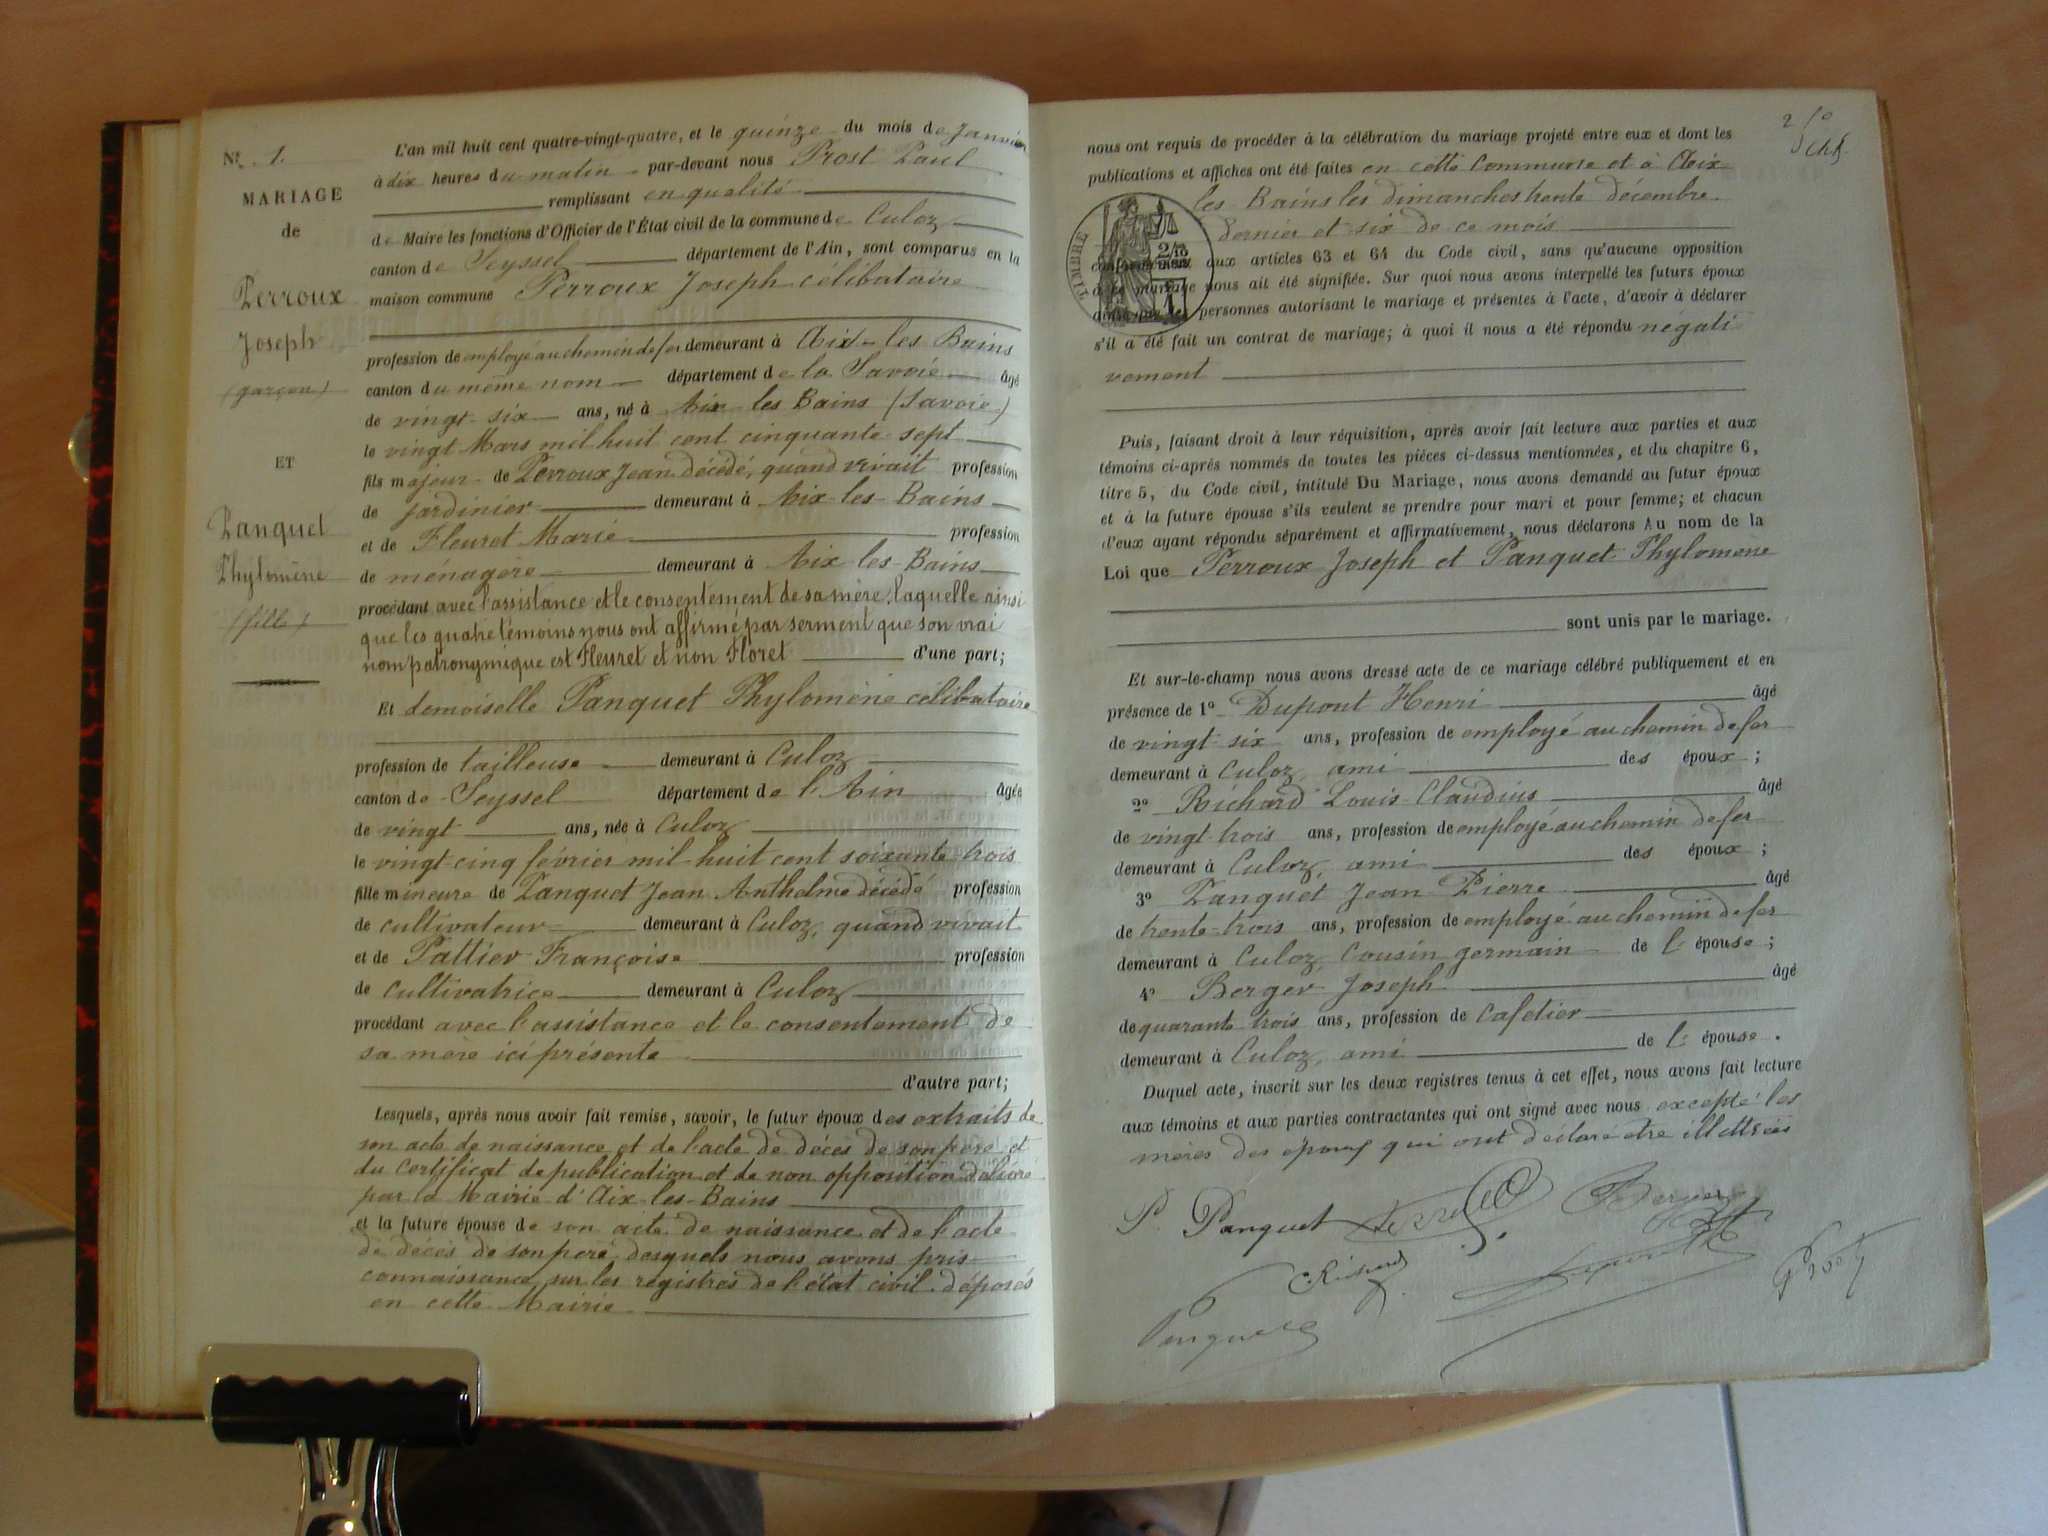 Nº 1.
MARIAGE
de
Perroux
Joseph
(garçon)
ET
Panquet
Phylomène
(fille)
L'an mil huit cent quatre-vingt-quatre, et le quinze du mois de Janvier
à dix heures du matin par-devant nous Prost Paul
remplissant en qualité
de Maire les fonctions d'Officier de l'État civil de la commune de Culoz
canton de Seyssel département de l'Ain, sont comparus en la
maison commune Perroux Joseph célibataire
profession de employé au chemin de fer demeurant à Aix-les Bains
canton du même nom département de la Savoie âgé
de vingt-six ans, né à Aix les Bains (Savoie)
le vingt Mars mil huit cent cinquante-sept
fils majeur de Perroux Jean décédé, quand vivait profession
de jardinier demeurant à Aix-les-Bains
et de Fleuret Marie profession
de ménagère demeurant à Aix-les-Bains
procédant avec l'assistance et le consentement de sa mère, laquelle ainsi
que les quatre témoins nous ont affirmé par serment que son vrai
nom patronymique est Fleuret et non Floret d'une part;
Et demoiselle Panquet Phylomène célibataire
profession de tailleuse demeurant à Culoz
canton de Seyssel département de l'Ain âgée
de vingt ans, née à Culoz
le vingt cinq février mil huit cent soixante trois
fille mineure de Panquet Jean Anthelme décédé profession
de cultivateur demeurant à Culoz, quand vivait
et de Pattier Françoise profession
de cultivatrice demeurant à Culoz
procédant avec l'assistance et le consentement de
sa mère ici présente
d'autre part;
Lesquels, après nous avoir fait remise, savoir, le futur époux des extraits de
son acte de naissance et de l'acte de décès de son père et
du certificat de publication et de non opposition délivré
par la Mairie d'Aix-les-Bains
et la future épouse de son acte de naissance et de l'acte
de décès de son père, desquels nous avons pris
connaissance sur les registres de l'état civil déposés
en cette Mairie
2
nous ont requis de procéder à la célébration du mariage projeté entre eux et dont les
publications et affiches ont été faites en cette Commune et à Aix
les Bains les dimanches trente décembre
dernier et six de ce mois
TIMBRE
conformément aux articles 63 et 64 du Code civil, sans qu'aucune opposition
à ce mariage nous ait été signifiée. Sur quoi nous avons interpellé les futurs époux
ainsi que les personnes autorisant le mariage et présentes à l'acte, d'avoir à déclarer
s'il a été fait un contrat de mariage; à quoi il nous a été répondu négati
vement
Puis, faisant droit à leur réquisition, après avoir fait lecture aux parties et aux
témoins ci-après nommés de toutes les pièces ci-dessus mentionnées, et du chapitre 6,
titre 5, du Code civil, intitulé Du Mariage, nous avons demandé au futur époux
et à la future épouse s'ils veulent se prendre pour mari et pour femme; et chacun
d'eux ayant répondu séparément et affirmativement, nous déclarons Au nom de la
Loi que Perroux Joseph et Panquet Phylomène
sont unis par le mariage.
Et sur-le-champ nous avons dressé acte de ce mariage célébré publiquement et en
présence de 1º Dupont Henri âgé
de vingt six ans, profession de employé au chemin de fer
demeurant à Culoz, ami des époux;
2º Richard Louis-Claudius âgé
de vingt-trois ans, profession de employé au chemin de fer
demeurant à Culoz, ami des époux;
3º Panquet Jean Pierre âgé
de trente-trois ans, profession de employé au chemin de fer
demeurant à Culoz, Cousin germain de l'épouse;
4º Berger Joseph âgé
de quarante trois ans, profession de Cafetier
demeurant à Culoz, ami de l'épouse.
Duquel acte, inscrit sur les deux registres tenus à cet effet, nous avons fait lecture
aux témoins et aux parties contractantes qui ont signé avec nous excepté les
mères des époux qui ont déclaré être illettrées
P. Panquet Perroux Berger
Richard
Panquet